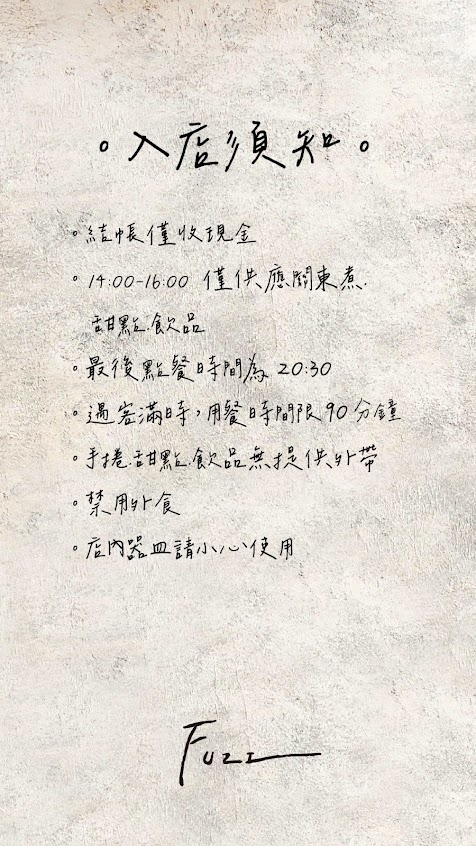 。入店須知。
。結帳僅收現金
。14:00-16:00 僅供應關東煮.
甜點.飲品
。最後點餐時間為 20:30
。遇客滿時，用餐時間限90分鐘
。手捲.甜點.飲品無提供外帶
。禁用外食
。店內器皿請小心使用
Fuzz